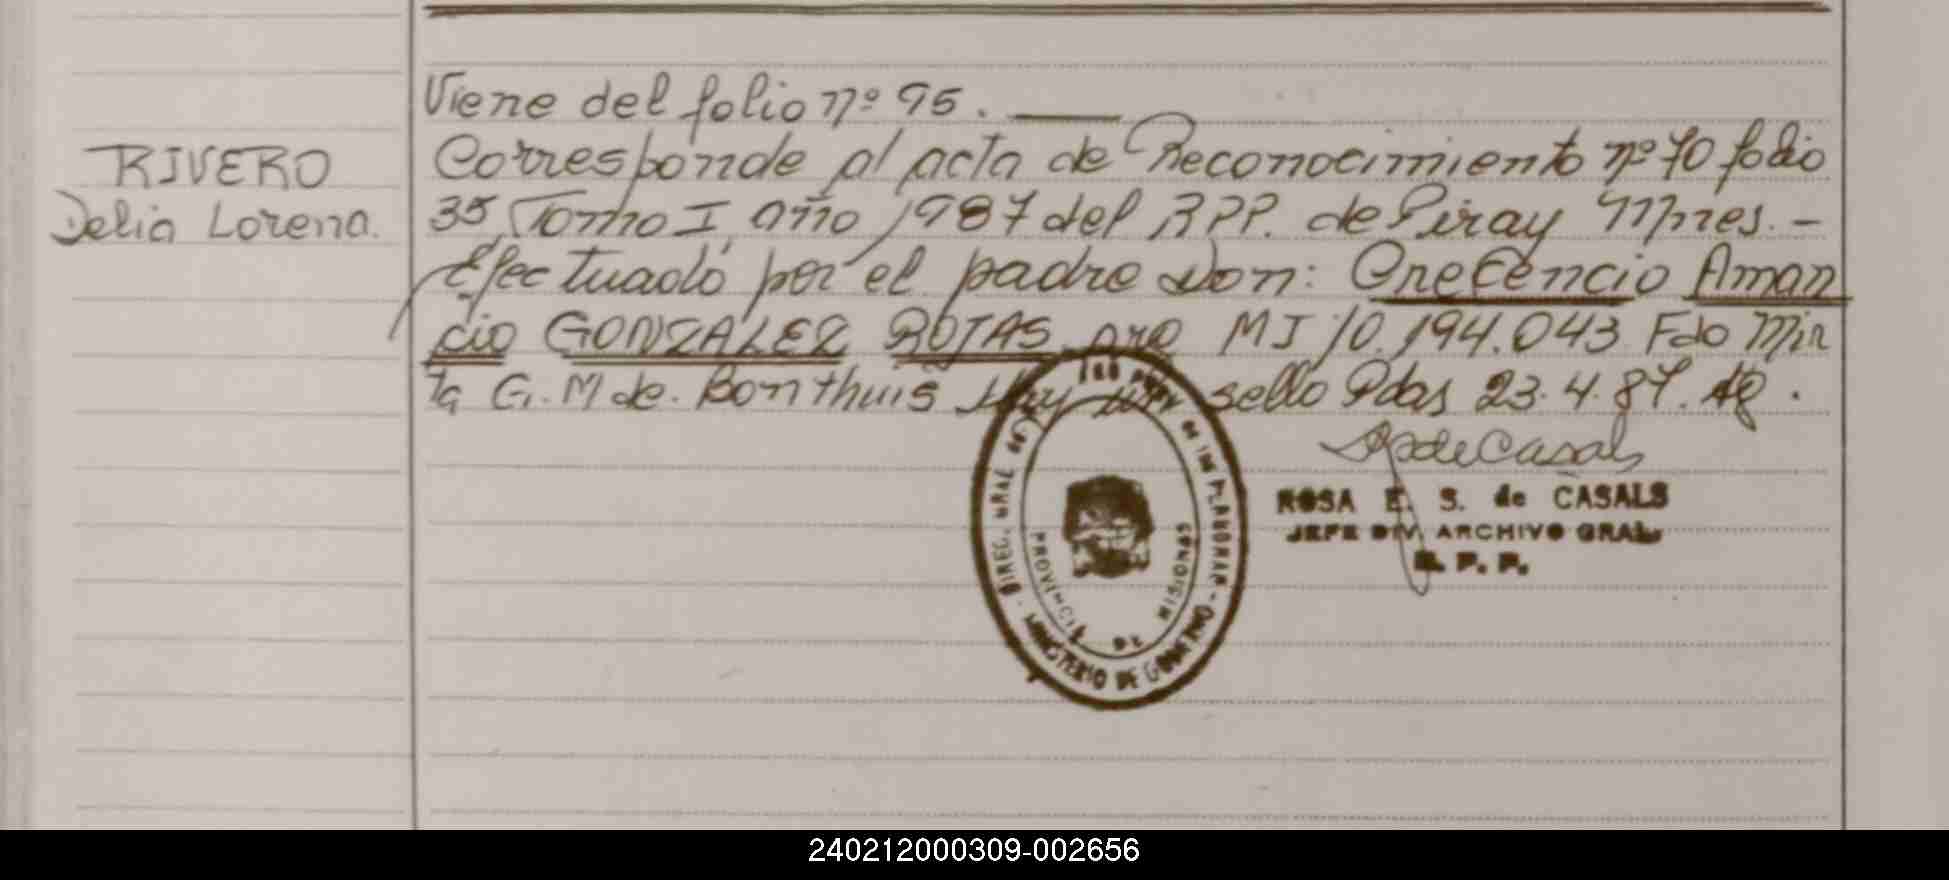 Viene del folio nº 95.
RIVERO
Delia Lorena.
Corresponde al acta de Reconocimiento nº 70 folio
35, Tomo I, año 1987 del R.P.P. de Piray Mnes. -
Efectuado por el padre Don: Crecencio Aman
cio GONZALEZ ROJAS arg MI 10.194.043 Fdo Mir
ta G. M de. Bonthuis Hay un sello Pdas 23.4.87.
ROSA E. S. de CASALS
JEFE DIV. ARCHIVO GRAL.
R. P. P.
DIREC. GRAL DE REG PCIAL DE LAS PERSONAS - MINISTERIO DE GOBIERNO
PROVINCIA DE MISIONES
240212000309-002656